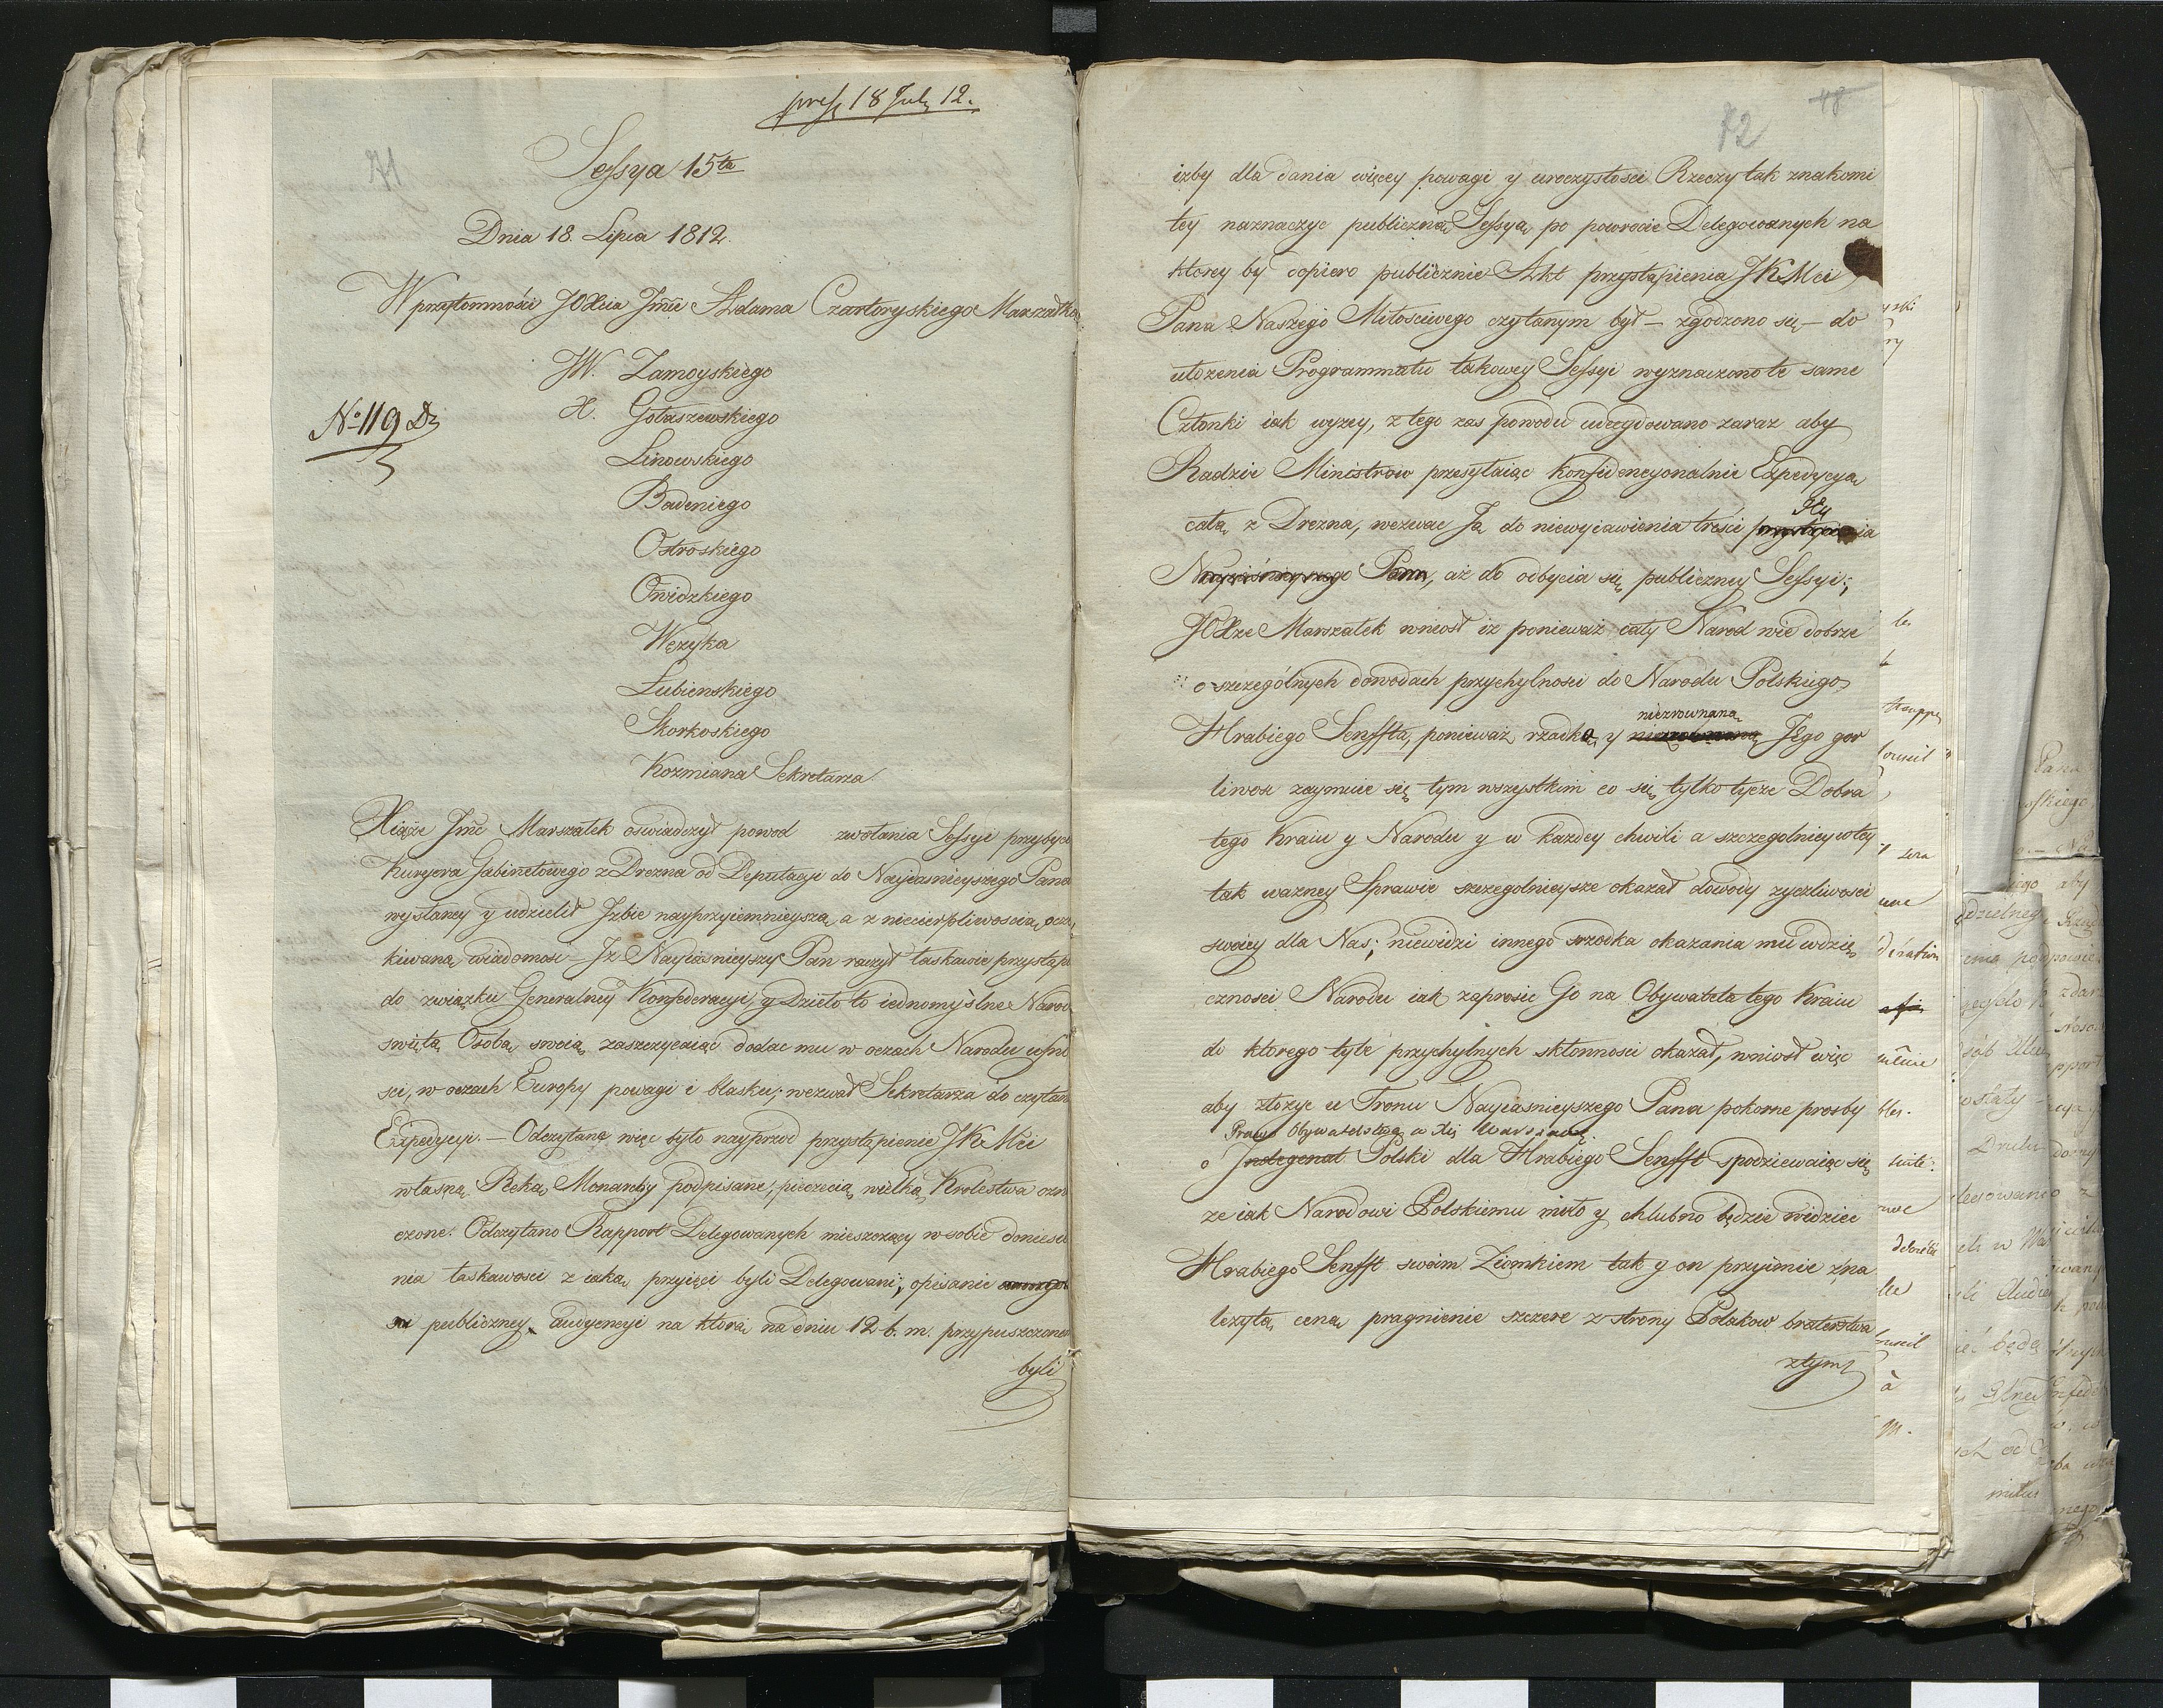 18 July 12.
71
Sessya 15ta
Dnia 18. Lipca 1812.
W przytomności JOXcia Jmći Adama Czartoryskiego Marszałka
JW. Zamoyskiego
No 119 Dz
X. Gołaszewskiego
Linowskiego
Badeniego
Ostroskiego
Owidzkiego
Wężyka
Łubienskiego
Skorkoskiego
Kozmiana Sekretarza.
Xiąże Jmć Marszałek oswiadczył powod zwołania Sessyi przybycie
Kuryera Gabinetowego z Drezna od Deputacyi do Nayiasnieyszego Pana
wysłaney y udzielił Jzbie nayprzyiemnieyszą a z niecierpliwoscią ocze
kiwaną wiadomosc – Jz Nayiasnieyszy Pan raczył łaskawie przystąpic
do związku Generalney Konfederacyi, y Dzieło to iednomyślne Narod
swiętą Osobą swoią zaszczycaiąc dodac mu w oczach Narodu
sci, w oczach Europy powagi i blasku; wezwał Sekretarza do czytania
Expedycyi. – Odczytane więc było nayprzod przystąpienie JKMci
własną Ręką Monarchy podpisane, pieczecią wielką Krolestwa
czone. Odczytano Rapport Delegowanych mieszczący w sobie doniesie
nia łaskawosci z iaką przyięci byli Delegowani; opisanie
publiczney Audyencyi na ktorą na dniu 12 b. m. przypuszczone
byli
72 48
izby dla dania więcey powagi y uroczystości Rzeczy tak znakomi
tey naznaczyc publiczną Sessyą po powrocie Delegowanych na
ktorey by dopiero publicznie Akt przystąpienia JKMci
Pana Naszego Miłosciwego czytanym był – zgodzono się – do
ułożenia Programmatu takowey Sessyi wyznaczono te same
Członki iak wyzey, z tego zas powodu udecydowano zaraz aby
Radzie Ministrow przesyłaiąc konfidencyonalnie Expedycyą
całą z Drezna, wezwac Ją do niewyiawienia treści Jey przystąpienia
Nayiaśnieyszego Pana, aż do odbycia się publiczney Sessyi;
JOXże Marszałek wniosł iz ponieważ cały Narod wie dobrze
o szczególnych dowodach przychylnosci do Narodu Polskiego
Hrabiego Senffta, ponieważ rzadką y niezrownaną Jego gor
liwosc zaymuie się tym wszystkim co się tylko tycze Dobra
tego Kraiu y Narodu y w każdey chwili a szczegolniey w tey
tak wazney Sprawie szczegolnieysze okazał dowody zyczliwosci
swoiey dla Nas; niewidzi innego srzodka okazania mu wdzię
cznosci Narodu iak zaprosic Go na Obywatela tego Kraiu
do ktorego tyle przychylnych skłonnosci okazał, wniosł więc
aby złożyc u Tronu Nayiasnieyszego Pana pokorne prosby
Prawo Obywatelstwa w Xię Warszaw.
o Jndegenat Polski dla Hrabiego Senfft spodziewaiąc się
ze iak Narodowi Polskiemu miło y chlubno będzie widziec
Hrabiego Senfft swoim Ziomkiem tak y on przyimie z na
lezytą ceną pragnienie szczere z strony Polakow braterstwa
z tym